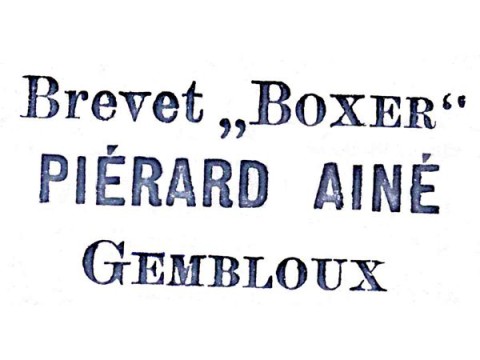 Brevet „BOXER“
PIÉRARD AINÉ
GEMBLOUX